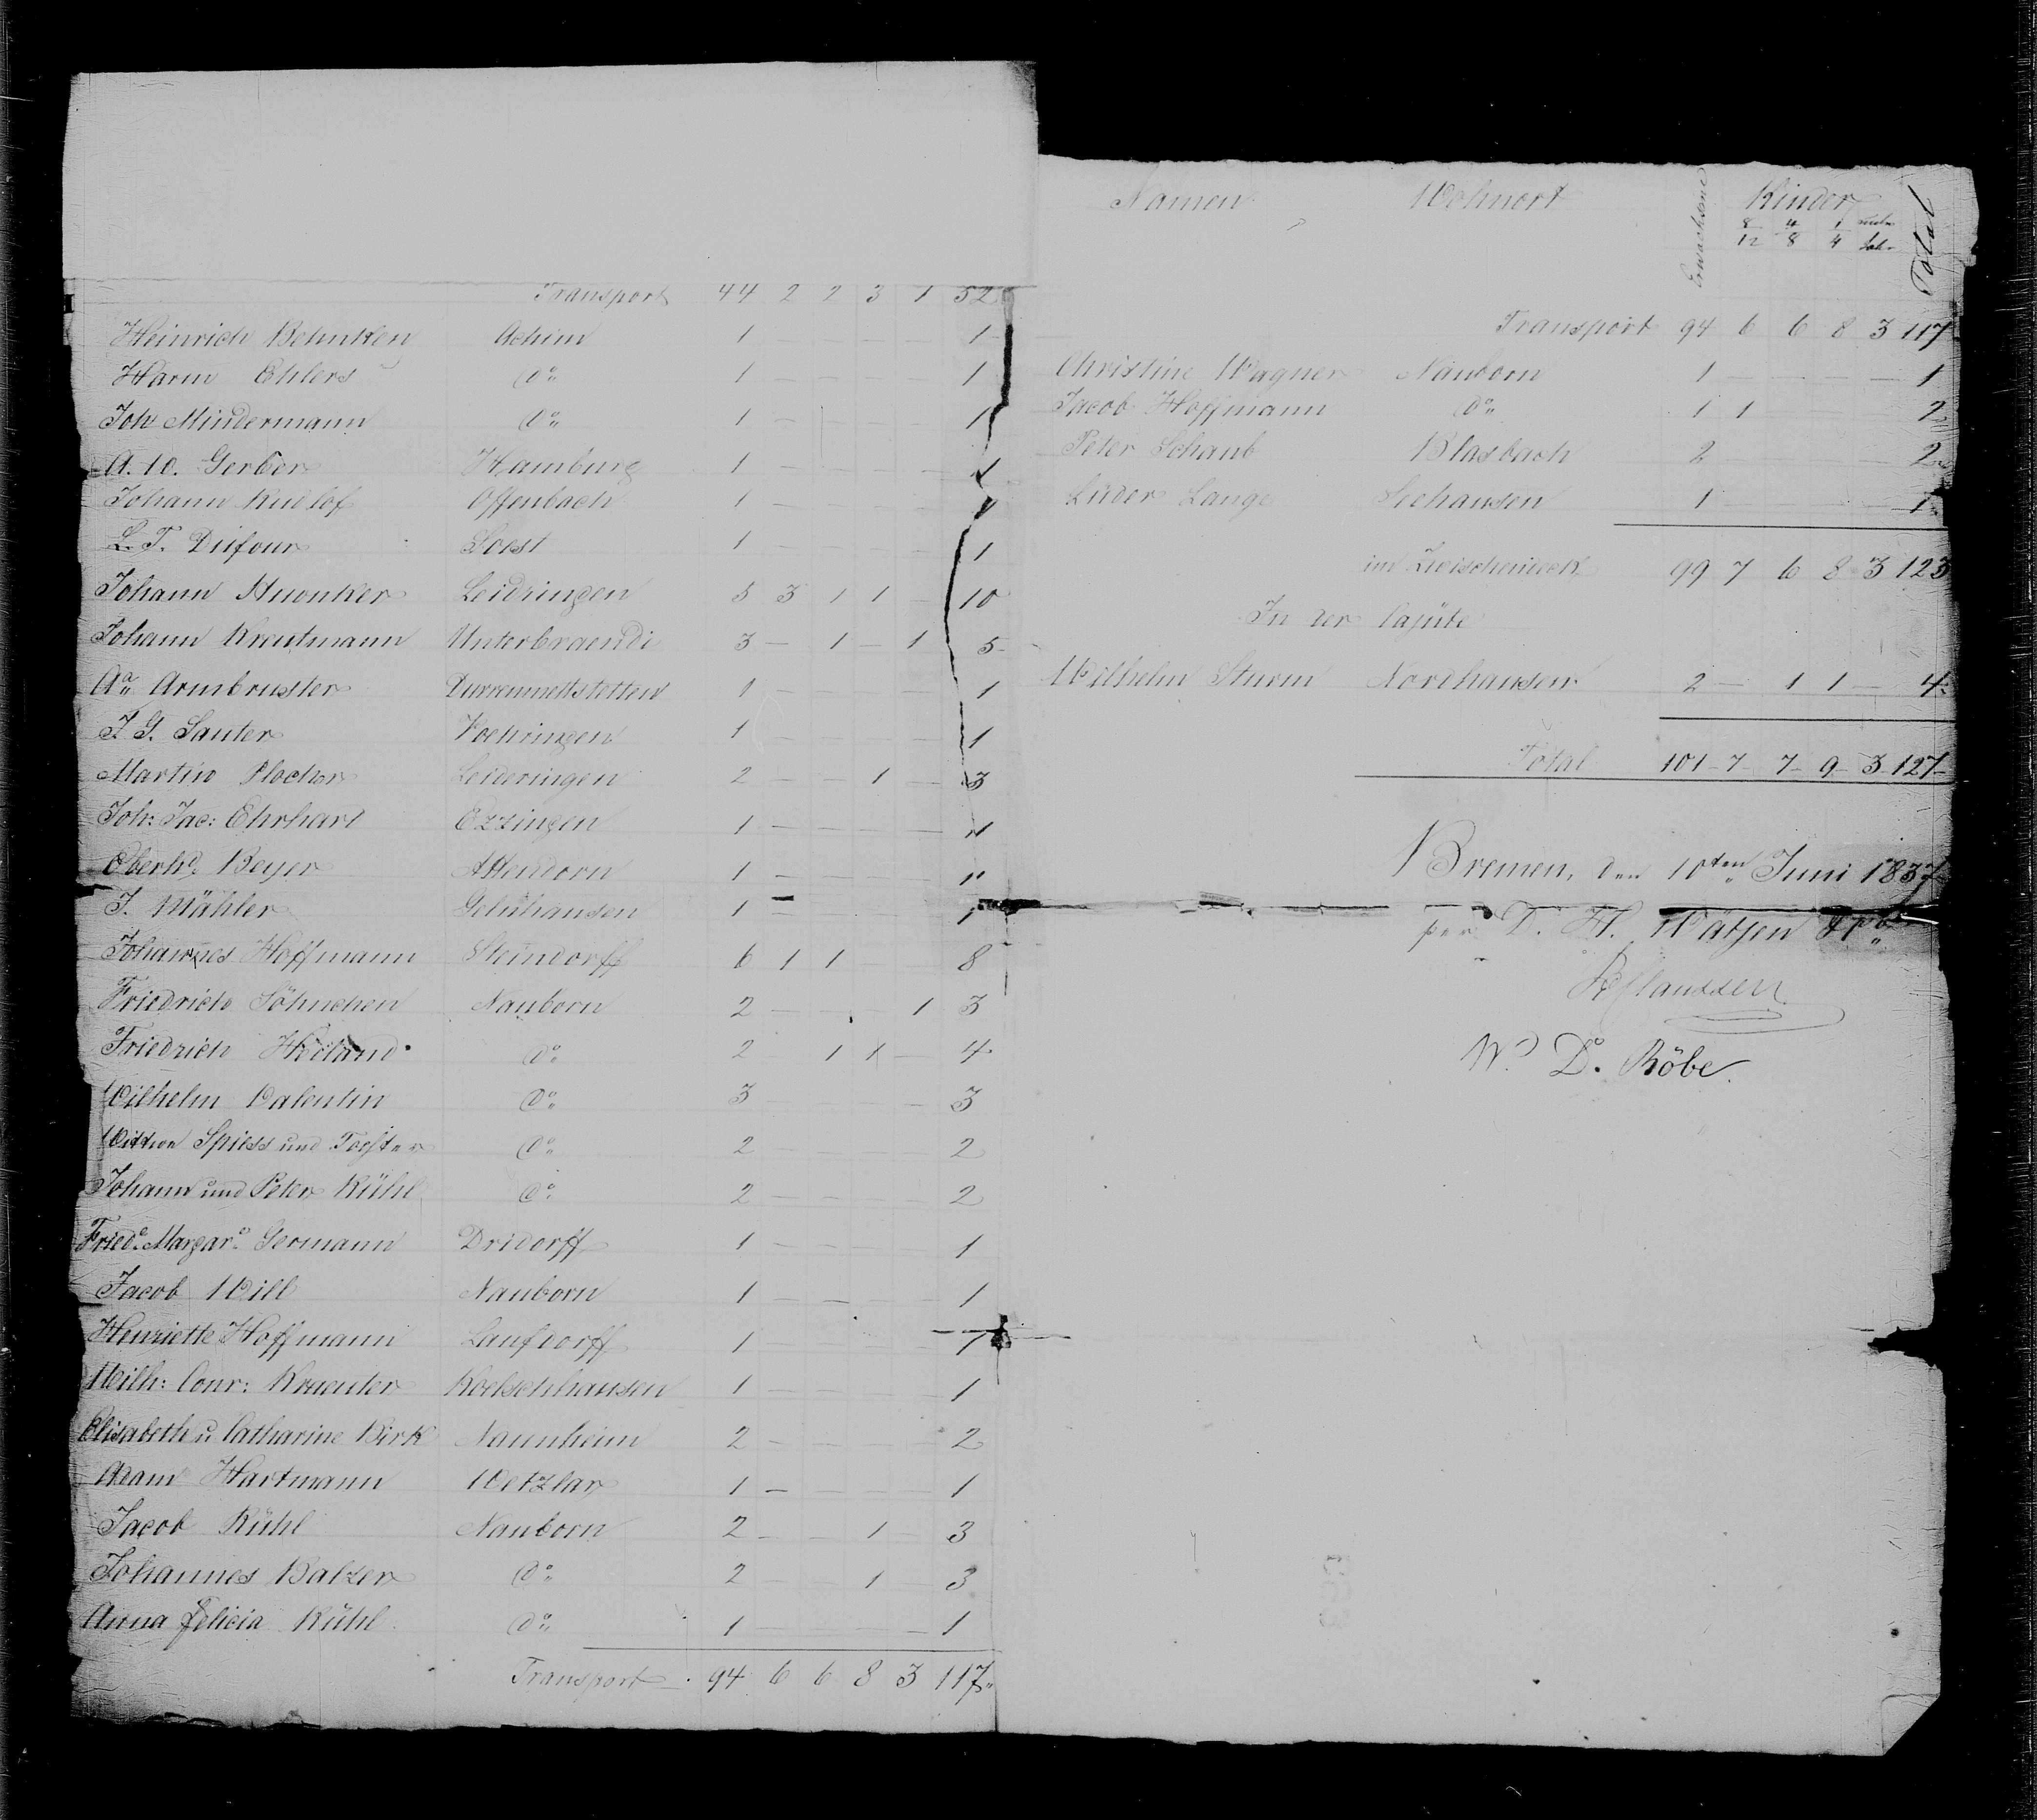 Transport 44 2 2 3 1 52
Heinrich Behnken Achim 1 — — — — 1
Harm Ehlers do 1 — — — — 1
Joh Mindermann do 1 — — — — 1
A. W. Gerber Hamburg 1 — — — — 1
Johann Rudlof Offenbach 1 — — — — 1
L. T. Düfour Soest 1 — — — — 1
Johann Leidringen 5 3 1 1 — 10
Johann Kreutmann Unterbraendi 3 — 1 — 1 5
Aa Armbruster Durrenmettstetten 1 — — — — 1
J. G. Sauter Voehringen 1 — — — — 1
Martin Plocher Leideringen 2 — — 1 — 3
Joh: Jac: Ehrhart Ezzingen 1 — — — — 1
Eberhd Beyer Attendorn 1 — — — — 1
J. Mähler Gelnhausen 1 — — — — 1
Johannes Hoffmann Steindorff 6 1 1 8
Friedrich Söhnchen Nauborn 2 — — — 1 3
Friedrich Do 2 1 1 — 4
Wilhelm Valentin Do 3 — — — — 3
Wittwe Spiess und Tochter do 2 — — — — 2
Johann und Peter Rühl do 2 — — — — 2
Fried. Margar. Germann Dridorff 1 — — — — 1
Jacob Will Nauborn 1 — — — — 1
Henriette Hoffmann Laufdorff 1 — — — — 1
Wilh: Conr: Kraeuter 1 — — — — 1
Elisabeth u Catharine Birk Nannheim 2 — — — — 2
Adam Hartmann Wetzlar 1 — — — — 1
Jacob Rühl Nauborn 2 — — 1 — 3
Johannes Balzer Do 2 — 1 — 3
Anna Felicia Rühl do 1 — — — — 1
Transport 94 6 6 8 3 117
Namen Wohnort Erwachsene Kinder Total
8/12 4/8 1/4 unter 1 Jahr
Transport 94 6 6 8 3 117
Christine Wagner Nauborn 1 — — — — 1
Jacob Hoffmann do 1 1 2
Peter Schaub Blasbach 2 — — — — 2
Lüder Lange Seehausen 1 — — — — 1
im Zwischendeck 99 7 6 8 3 123
In der Cajüte
Wilhelm Sturm Nordhausen 2 — 1 1 — 4
Total 101 — 7 — 7 — 9 — 3 — 127 —
Bremen, den 10ten Juni 1837
per D. H. Wätjen & Co
Claussen
W. D. Röbe.